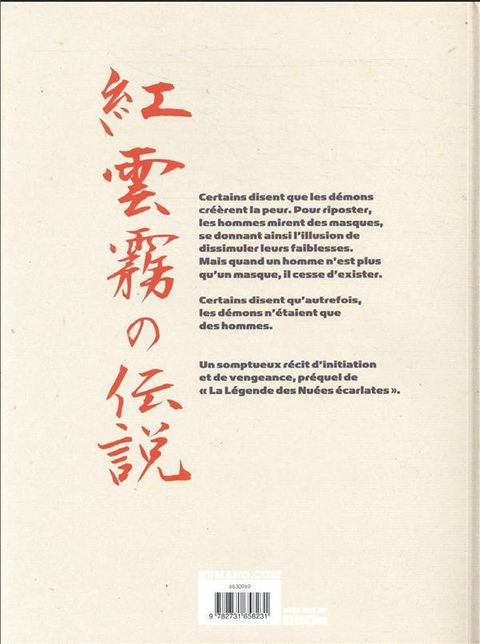 紅雲霧の伝説
Certains disent que les démons
créèrent la peur. Pour riposter,
les hommes mirent des masques,
se donnant ainsi l’illusion de
dissimuler leurs faiblesses.
Mais quand un homme n’est plus
qu’un masque, il cesse d’exister.
Certains disent qu’autrefois,
les démons n’étaient que
des hommes.
Un somptueux récit d’initiation
et de vengeance, préquel de
« La Légende des Nuées écarlates ».
HUMANO.COM
6630969
9 782731 658231